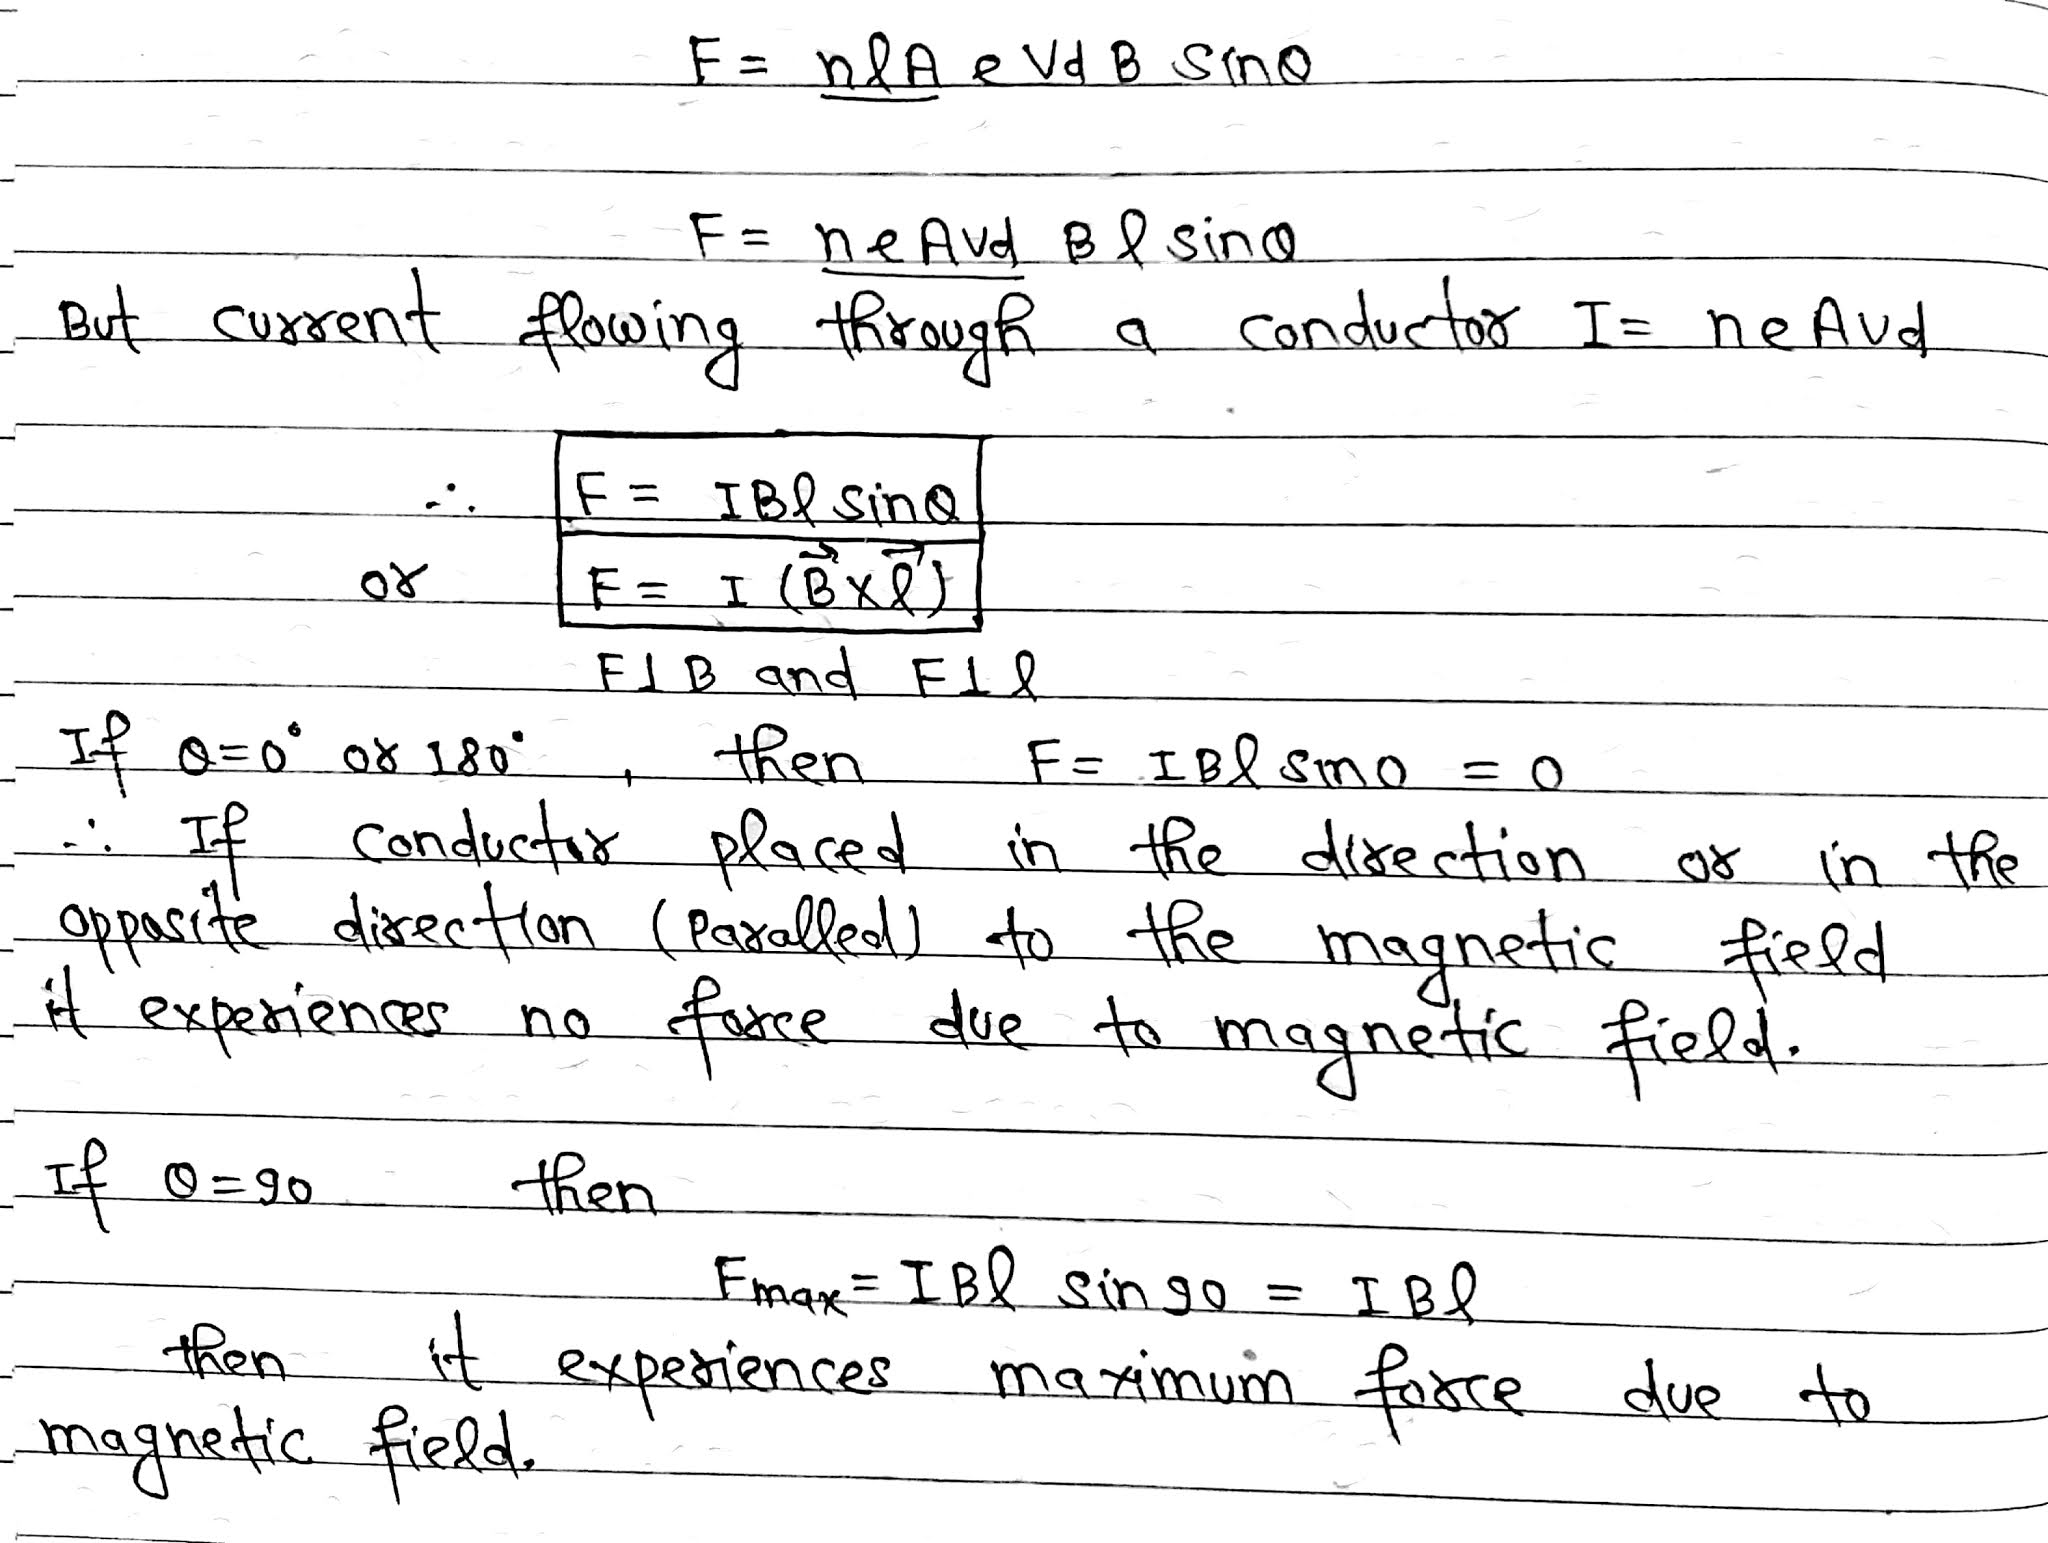 F = nlA e Vd B sinθ
F = neAvd Bl sinθ
But current flowing through a conductor I = neAvd
∴ F = IBl sinθ
or F = I (B⃗ x l⃗)
F⊥B and F⊥l
If θ=0° or 180°, then F = IBl sin0 = 0
∴ If conductor placed in the direction or in the
opposite direction (Paralled) to the magnetic field
it experiences no force due to magnetic field.
If θ=90 then
Fmax = IBl sin90 = IBl
then it experiences maximum force due to
magnetic field.